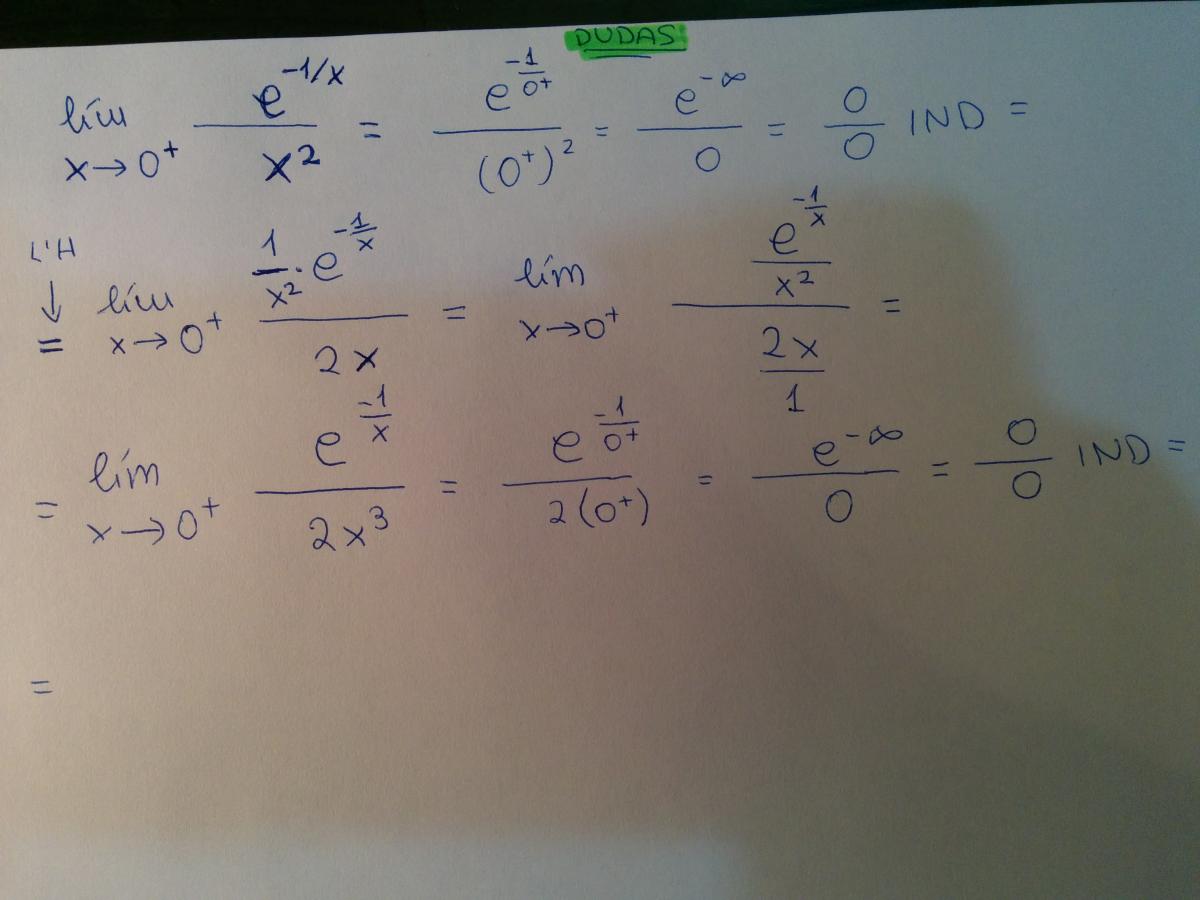 DUDAS
lím x→0⁺ e^(-1/x) / x² = e^(-1/0⁺) / (0⁺)² = e^(-∞) / 0 = 0/0 IND =
L'H ↓ = lím x→0⁺ (1/x² · e^(-1/x)) / 2x = lím x→0⁺ (e^(-1/x) / x²) / (2x/1) =
= lím x→0⁺ e^(-1/x) / 2x³ = e^(-1/0⁺) / 2(0⁺) = e^(-∞) / 0 = 0/0 IND =
=